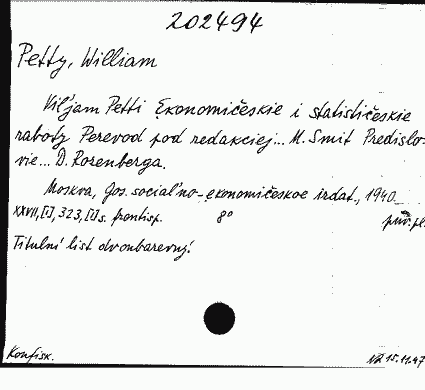 202494
Petty, William
Vil'jam Petti Ekonomičeskie i statističeskie
raboty Perevod pod redakciej... M. Smit Predislo-
vie... D. Rozenberga.
Moskva, Gos. social'no-ekonomičeskoe izdat., 1940.
XXVII, [I], 323, [I] s. frontisp. 8°
Titulní list dvoubarevný.
Konfisk. 15.11.47